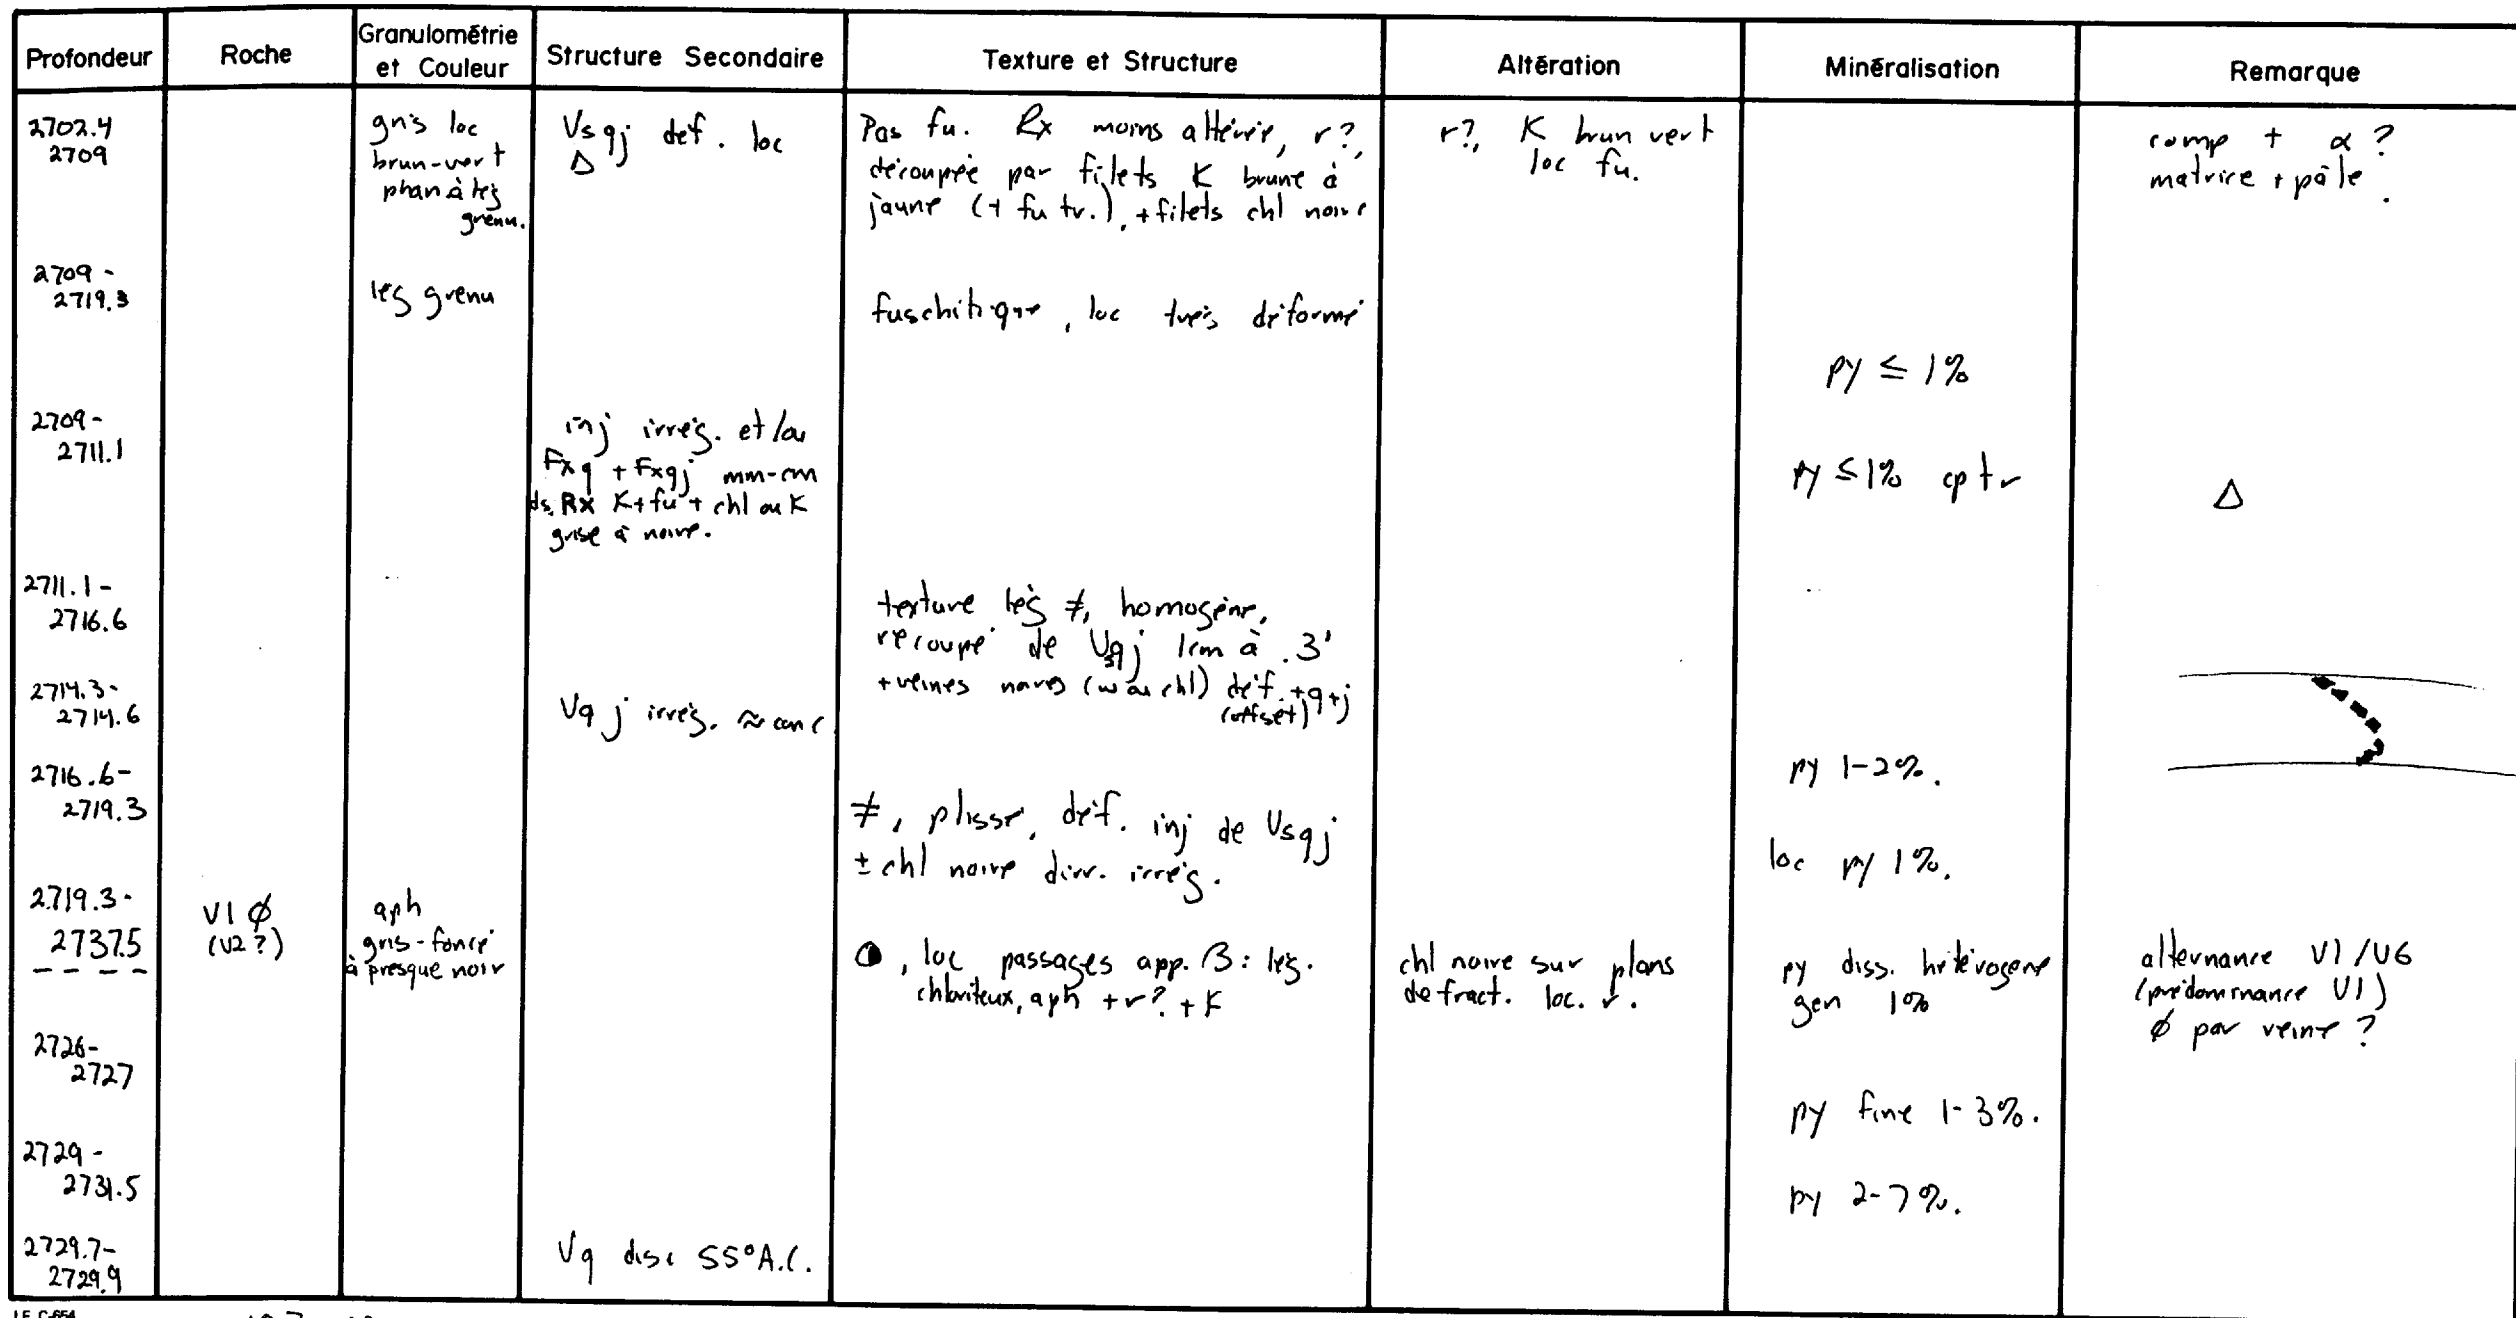 Profondeur
Roche
Granulométrie
et Couleur
Structure Secondaire
Texture et Structure
Altération
Minéralisation
Remarque
2702.4
2709
gris loc
brun-vert
phan à lég
grenu.
Vsqj def. loc
Δ
Pas fu. Rx moins altérée, r?,
découpée par filets K brune à
jaune (+ fu tr.), + filets chl noire
r?, K brun vert
loc fu.
comp + α ?
matrice + pâle.
2709 -
2719.3
lég grenu
fuschitique, loc très déformé
py ≤ 1%
2709 -
2711.1
inj irrég. et/ou
Fxq + Fxqj mm-cm
ds Rx K + fu + chl ou K
grise à noire.
py ≤ 1% cp tr
Δ
2711.1 -
2716.6
texture lég ≠, homogène,
recoupé de Vqj 1cm à .3'
+ veines noires (w ou chl) déf. + q + j
(offset)
2714.3 -
2714.6
Vqj irrég. ≈ conc
2716.6 -
2719.3
py 1-2%.
≠, plissé, déf. inj de Vsqj
± chl noire dirr. irrég.
loc py 1%.
2719.3 -
2737.5
V1 ϕ
(V2?)
aph
gris-foncé
à presque noir
, loc passages app. β: lég.
chloriteux, aph + r? + K
chl noire sur plans
de fract. loc. r.
py diss. hétérogène
gen 1%
alternance V1/V6
(prédominance V1)
ϕ par veine ?
2726 -
2727
py fine 1-3%.
2729 -
2731.5
py 2-7%.
2729.7 -
2729.9
Vq disc 55° A.C.